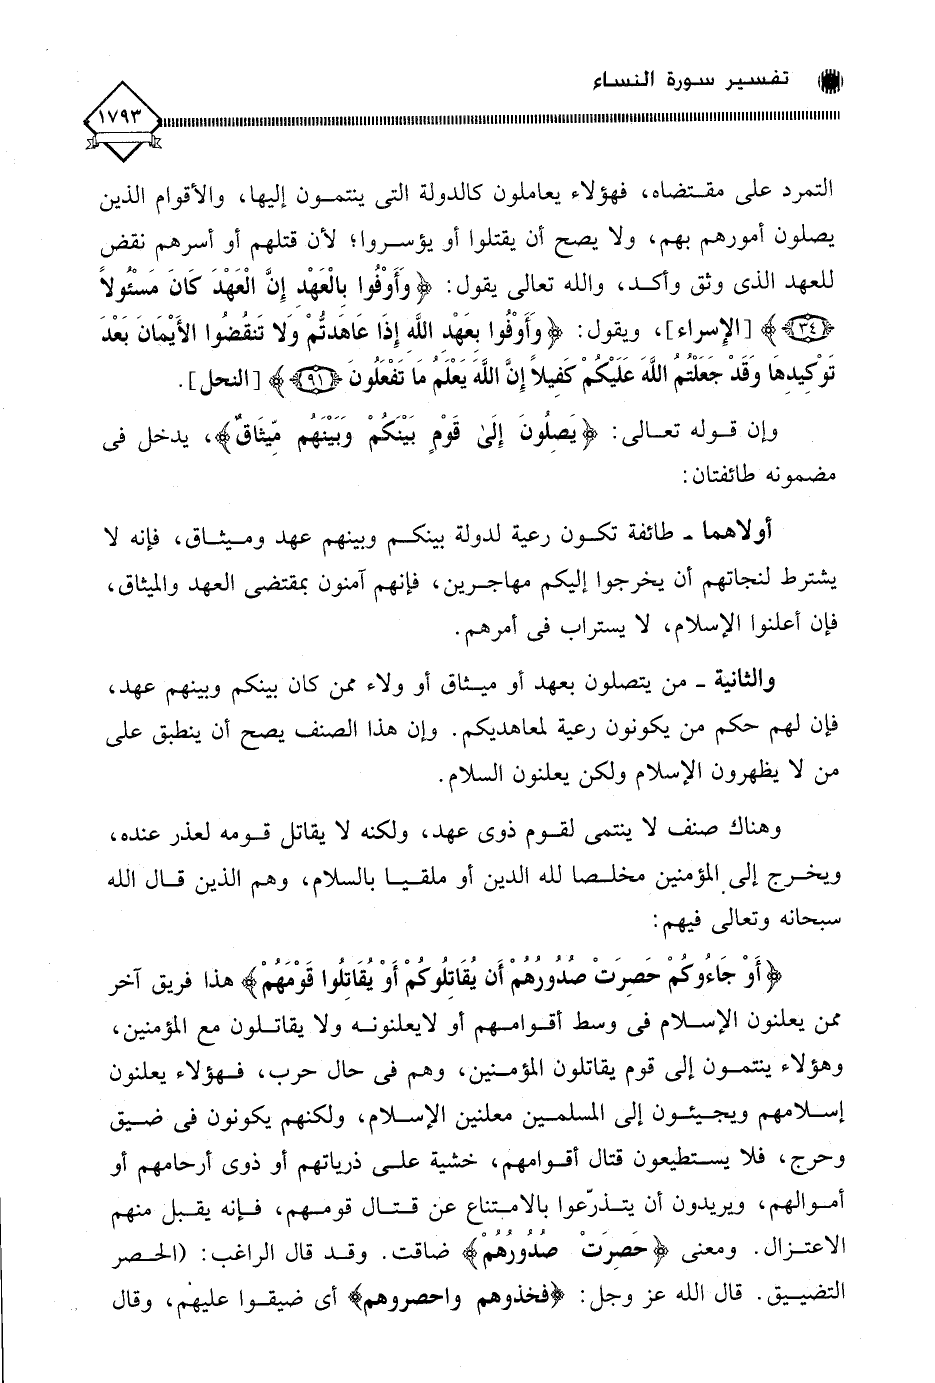 تفسير سورة النساء
١٧٩٣
التمرد على مقتضاه، فهؤلاء يعاملون كالدولة التى ينتمون إليها، والأقوام الذين
يصلون أمورهم بهم، ولا يصح أن يقتلوا أو يؤسروا؛ لأن قتلهم أو أسرهم نقض
للعهد الذى وثق وأكد، والله تعالى يقول: ﴿وَأَوْفُوا بِالْعَهْدِ إِنَّ الْعَهْدَ كَانَ مَسْئُولاً
﴿٣٤﴾﴾ [الإسراء]، ويقول: ﴿وَأَوْفُوا بِعَهْدِ اللَّهِ إِذَا عَاهَدتُّمْ وَلا تَنقُضُوا الأَيْمَانَ بَعْدَ
تَوْكِيدِهَا وَقَدْ جَعَلْتُمُ اللَّهَ عَلَيْكُمْ كَفِيلاً إِنَّ اللَّهَ يَعْلَمُ مَا تَفْعَلُونَ ﴿٩١﴾﴾ [النحل].
وإن قوله تعالى: ﴿يَصِلُونَ إِلَىٰ قَوْمٍ بَيْنَكُمْ وَبَيْنَهُم مِّيثَاقٌ﴾، يدخل فى
مضمونه طائفتان:
أولاهما ـ طائفة تكون رعية لدولة بينكم وبينهم عهد وميثاق، فإنه لا
يشترط لنجاتهم أن يخرجوا إليكم مهاجرين، فإنهم آمنون بمقتضى العهد والميثاق،
فإن أعلنوا الإسلام، لا يستراب فى أمرهم.
والثانية ـ من يتصلون بعهد أو ميثاق أو ولاء ممن كان بينكم وبينهم عهد،
فإن لهم حكم من يكونون رعية لمعاهديكم. وإن هذا الصنف يصح أن ينطبق على
من لا يظهرون الإسلام ولكن يعلنون السلام.
وهناك صنف لا ينتمى لقوم ذوى عهد، ولكنه لا يقاتل قومه لعذر عنده،
ويخرج إلى المؤمنين مخلصا لله الدين أو ملقيا بالسلام، وهم الذين قال الله
سبحانه وتعالى فيهم:
﴿أَوْ جَاءُوكُمْ حَصِرَتْ صُدُورُهُمْ أَن يُقَاتِلُوكُمْ أَوْ يُقَاتِلُوا قَوْمَهُمْ﴾ هذا فريق آخر
ممن يعلنون الإسلام فى وسط أقوامهم أو لايعلنونه ولا يقاتلون مع المؤمنين،
وهؤلاء ينتمون إلى قوم يقاتلون المؤمنين، وهم فى حال حرب، فهؤلاء يعلنون
إسلامهم ويجيئون إلى المسلمين معلنين الإسلام، ولكنهم يكونون فى ضيق
وحرج، فلا يستطيعون قتال أقوامهم، خشية على ذرياتهم أو ذوى أرحامهم أو
أموالهم، ويريدون أن يتذرّعوا بالامتناع عن قتال قومهم، فإنه يقبل منهم
الاعتزال. ومعنى ﴿حَصِرَتْ صُدُورُهُمْ﴾ ضاقت. وقد قال الراغب: (الحصر
التضييق. قال الله عز وجل: ﴿فخذوهم واحصروهم﴾ أى ضيقوا عليهم، وقال